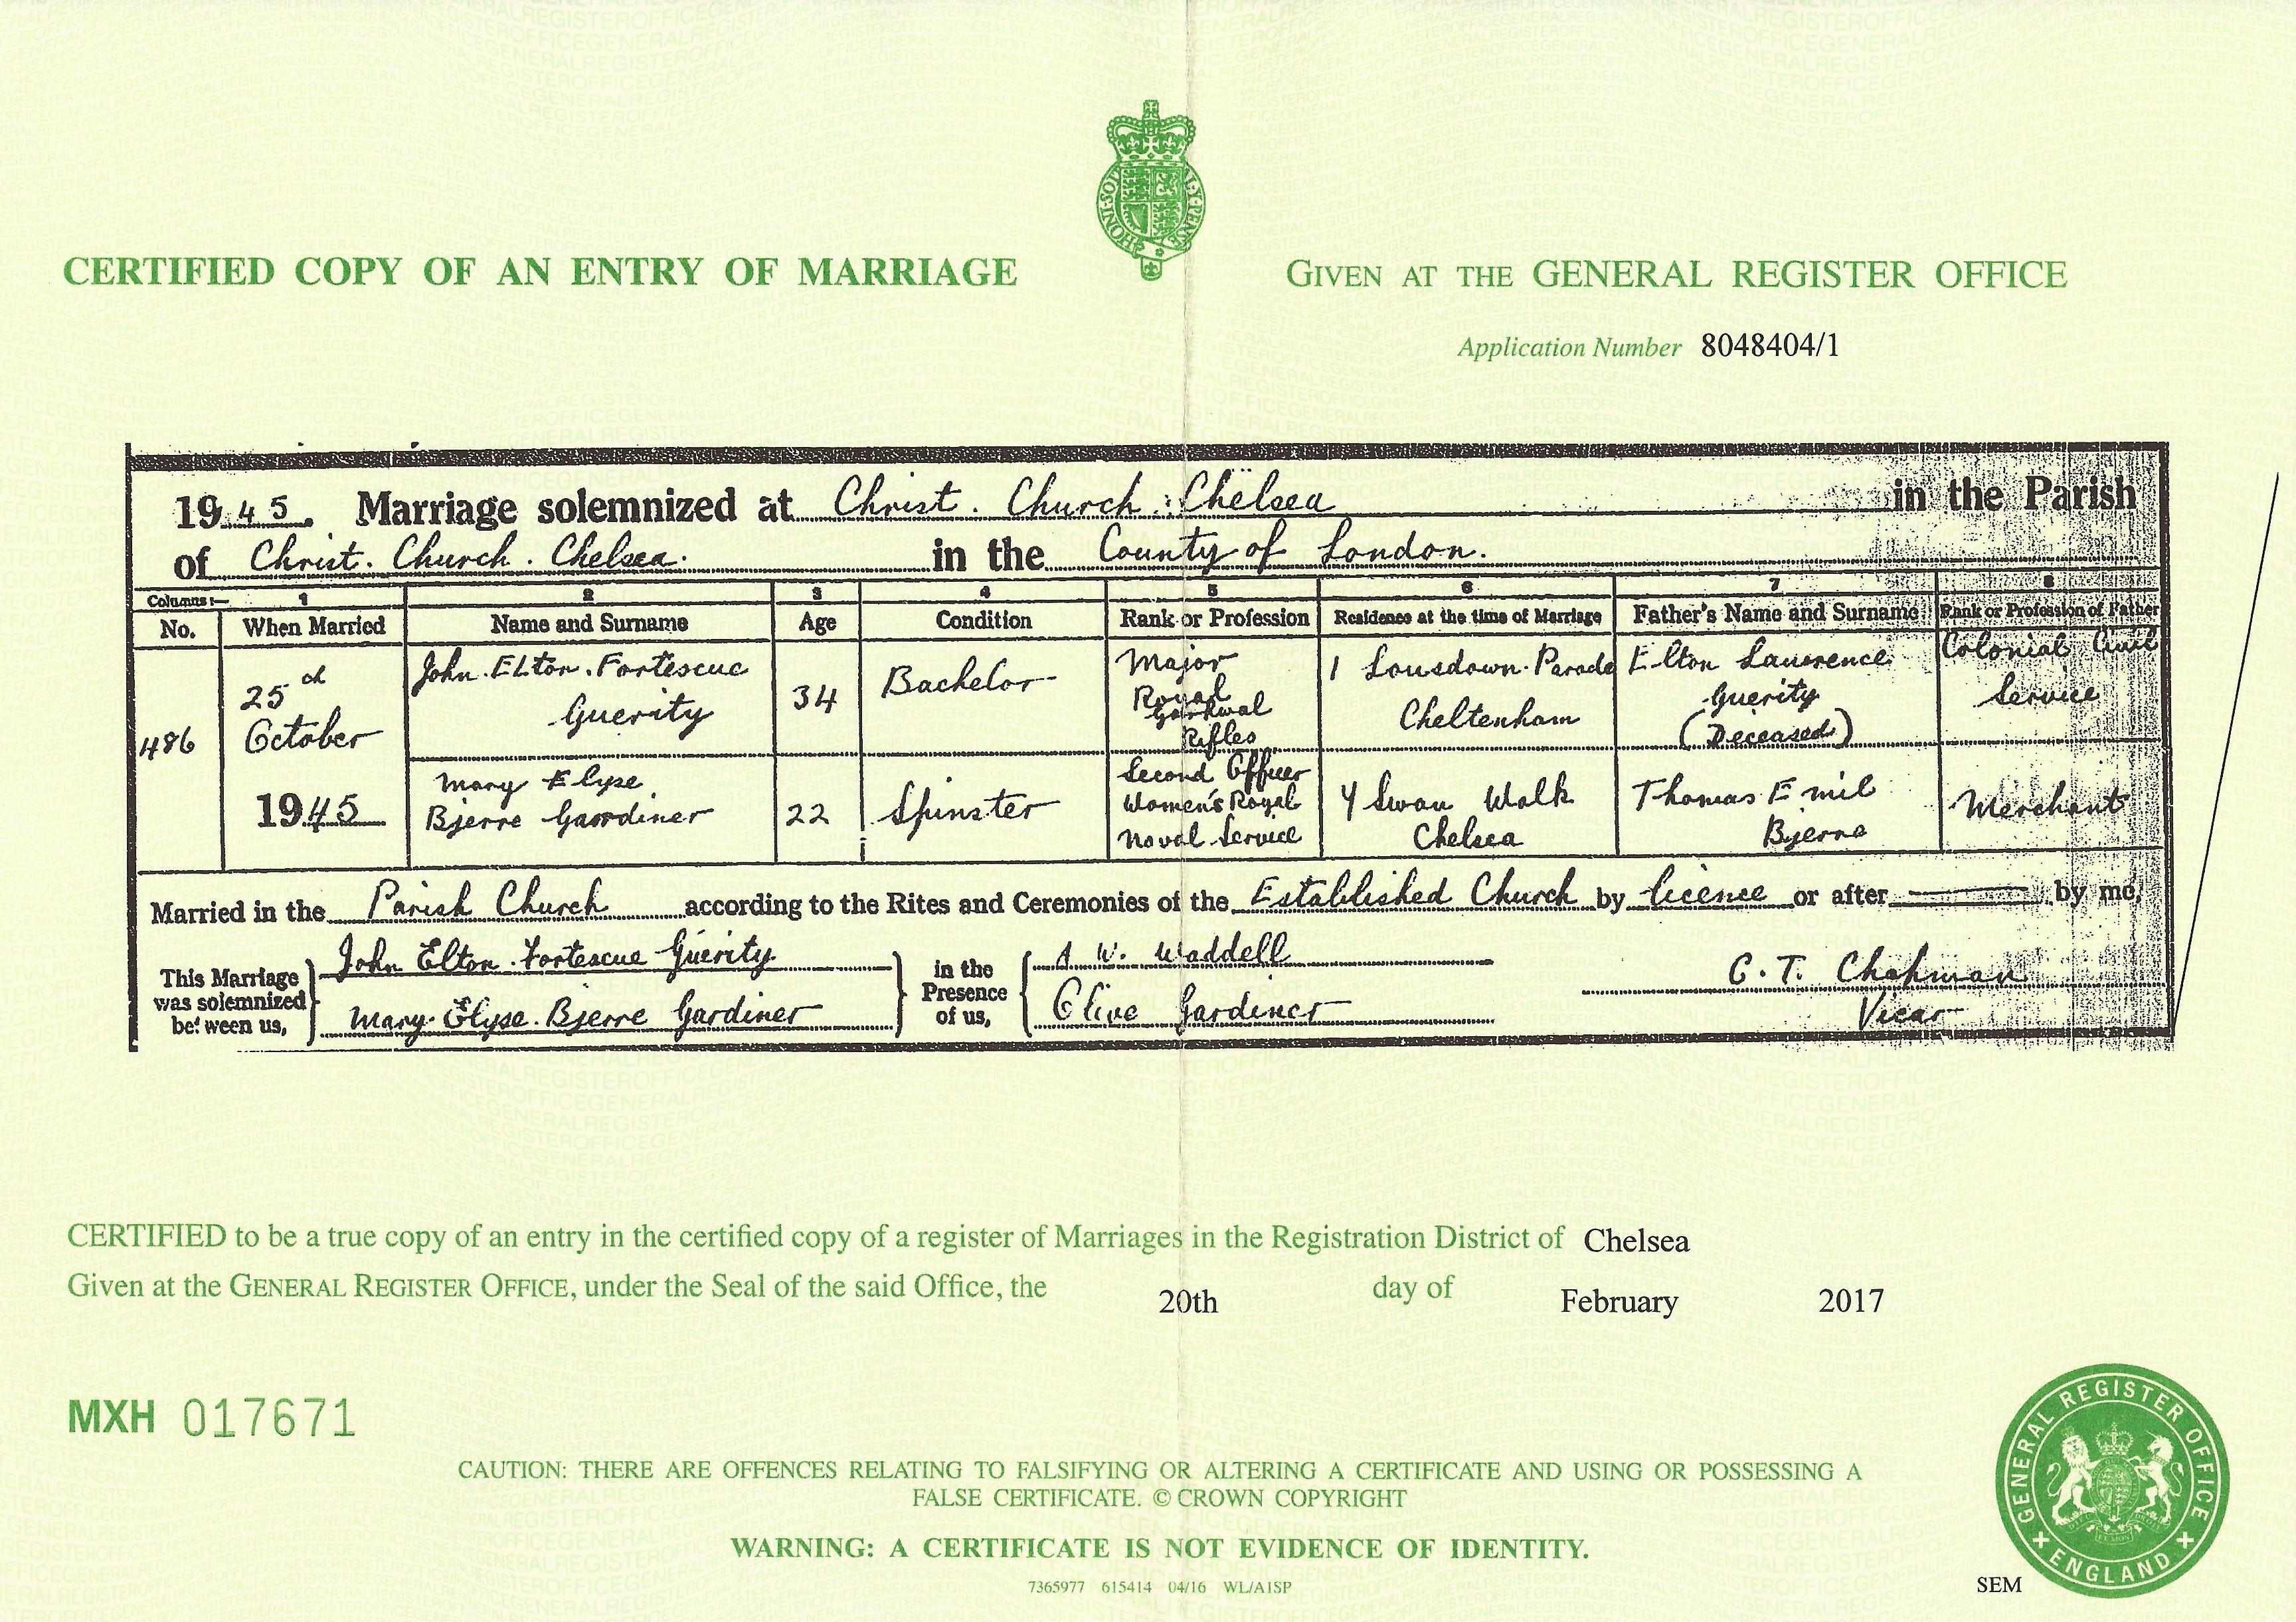 CERTIFIED COPY OF AN ENTRY OF MARRIAGE
GIVEN AT THE GENERAL REGISTER OFFICE
Application Number 8048404/1
1945. Marriage solemnized at Christ. Church. Chelsea in the Parish
of Christ. Church. Chelsea. in the County of London.
Columns:— 1 2 3 4 5 6 7 8
No. When Married Name and Surname Age Condition Rank or Profession Residence at the time of Marriage Father's Name and Surname Rank or Profession of Father
486
25th
October
1945
John. Elton. Fortescue
Guerity
34
Bachelor
Major
Royal
Garhwal
Rifles
1 Lansdown Parade
Cheltenham
Elton Lawrence
Guerity
(Deceased)
Colonial Civil
Service
Mary Elyse
Bjerre Gardiner
22
Spinster
Second Officer
Women's Royal
Naval Service
4 Swan Walk
Chelsea
Thomas Emil
Bjerre
Merchant
Married in the Parish Church according to the Rites and Ceremonies of the Established Church by licence or after by me,
This Marriage
was solemnized
between us,
John Elton. Fortescue Guerity
Mary. Elyse. Bjerre Gardiner
in the
Presence
of us,
W. Waddell
Clive Gardiner
C. T. Chapman
Vicar
CERTIFIED to be a true copy of an entry in the certified copy of a register of Marriages in the Registration District of Chelsea
Given at the GENERAL REGISTER OFFICE, under the Seal of the said Office, the 20th day of February 2017
MXH 017671
CAUTION: THERE ARE OFFENCES RELATING TO FALSIFYING OR ALTERING A CERTIFICATE AND USING OR POSSESSING A
FALSE CERTIFICATE. © CROWN COPYRIGHT
WARNING: A CERTIFICATE IS NOT EVIDENCE OF IDENTITY.
7365977 615414 04/16 WL/AISP
SEM
GENERAL REGISTER OFFICE
ENGLAND